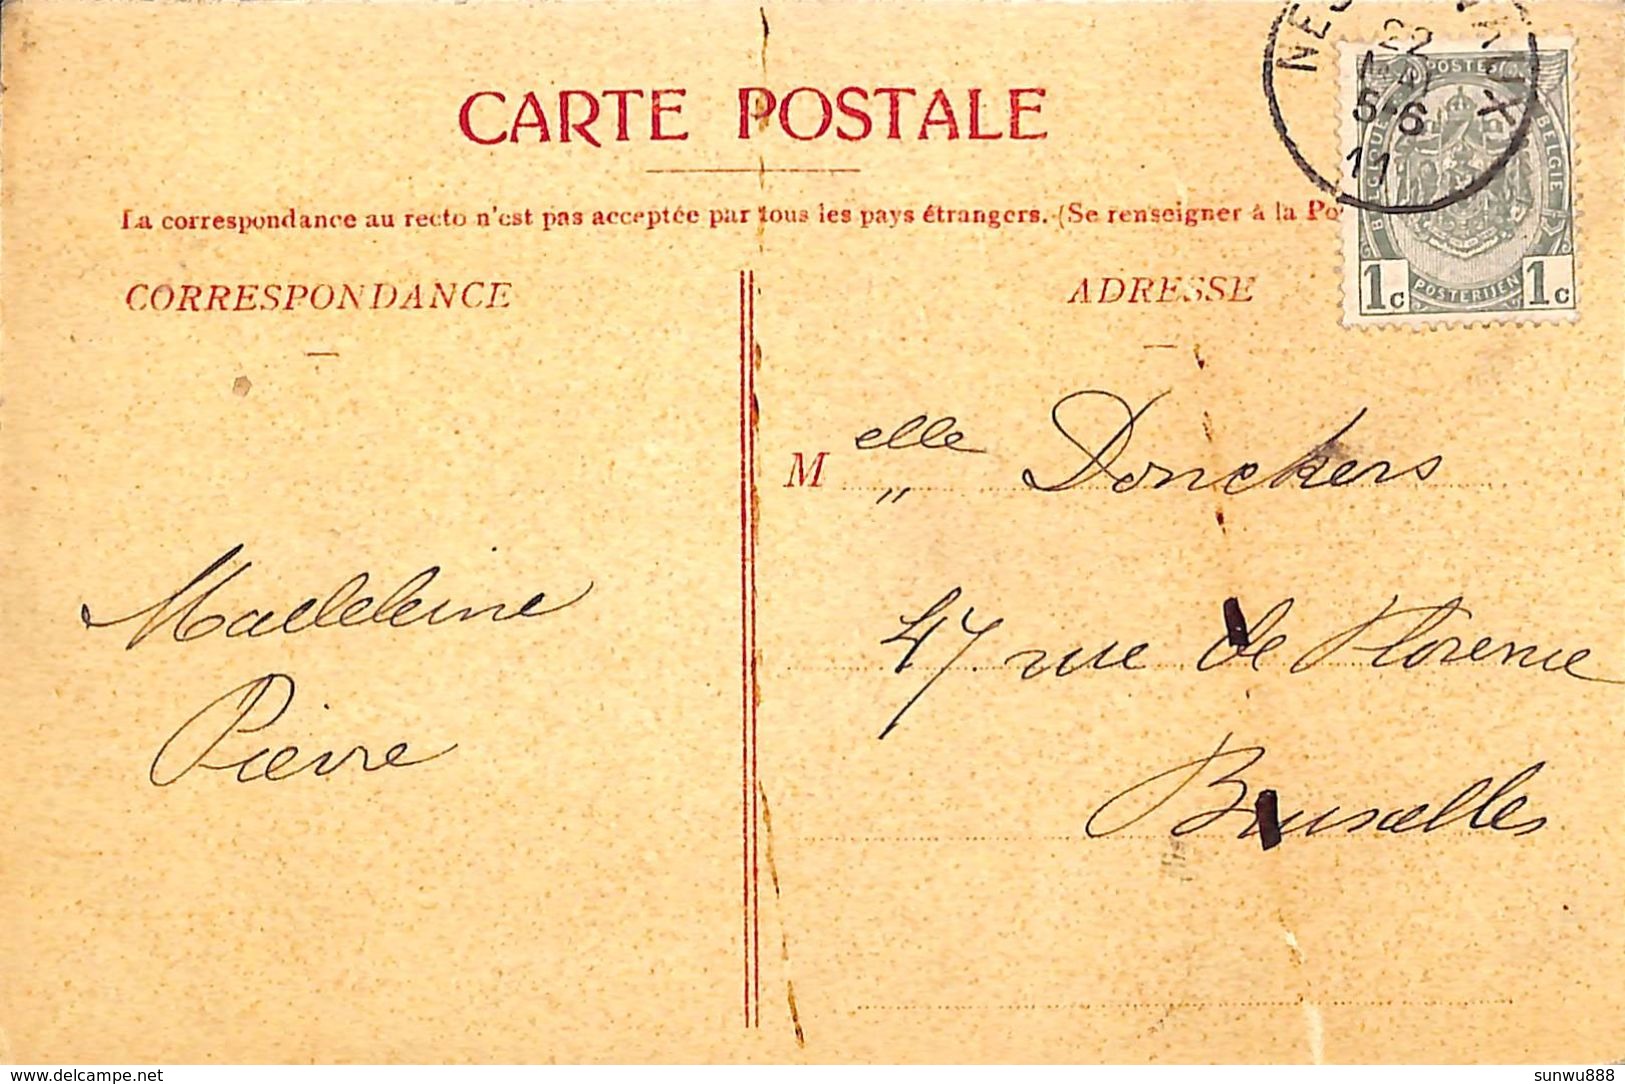 CARTE POSTALE
La correspondance au recto n'est pas acceptée par tous les pays étrangers. (Se renseigner à la Po
CORRESPONDANCE
ADRESSE
22
5-6
11
POSTES
BELGIQUE
BELGIE
POSTERIJEN
1c 1c
Melle Donckers
47 rue de Florence
Bruxelles
Madeleine
Pierre
delcampe.net
sunwu888